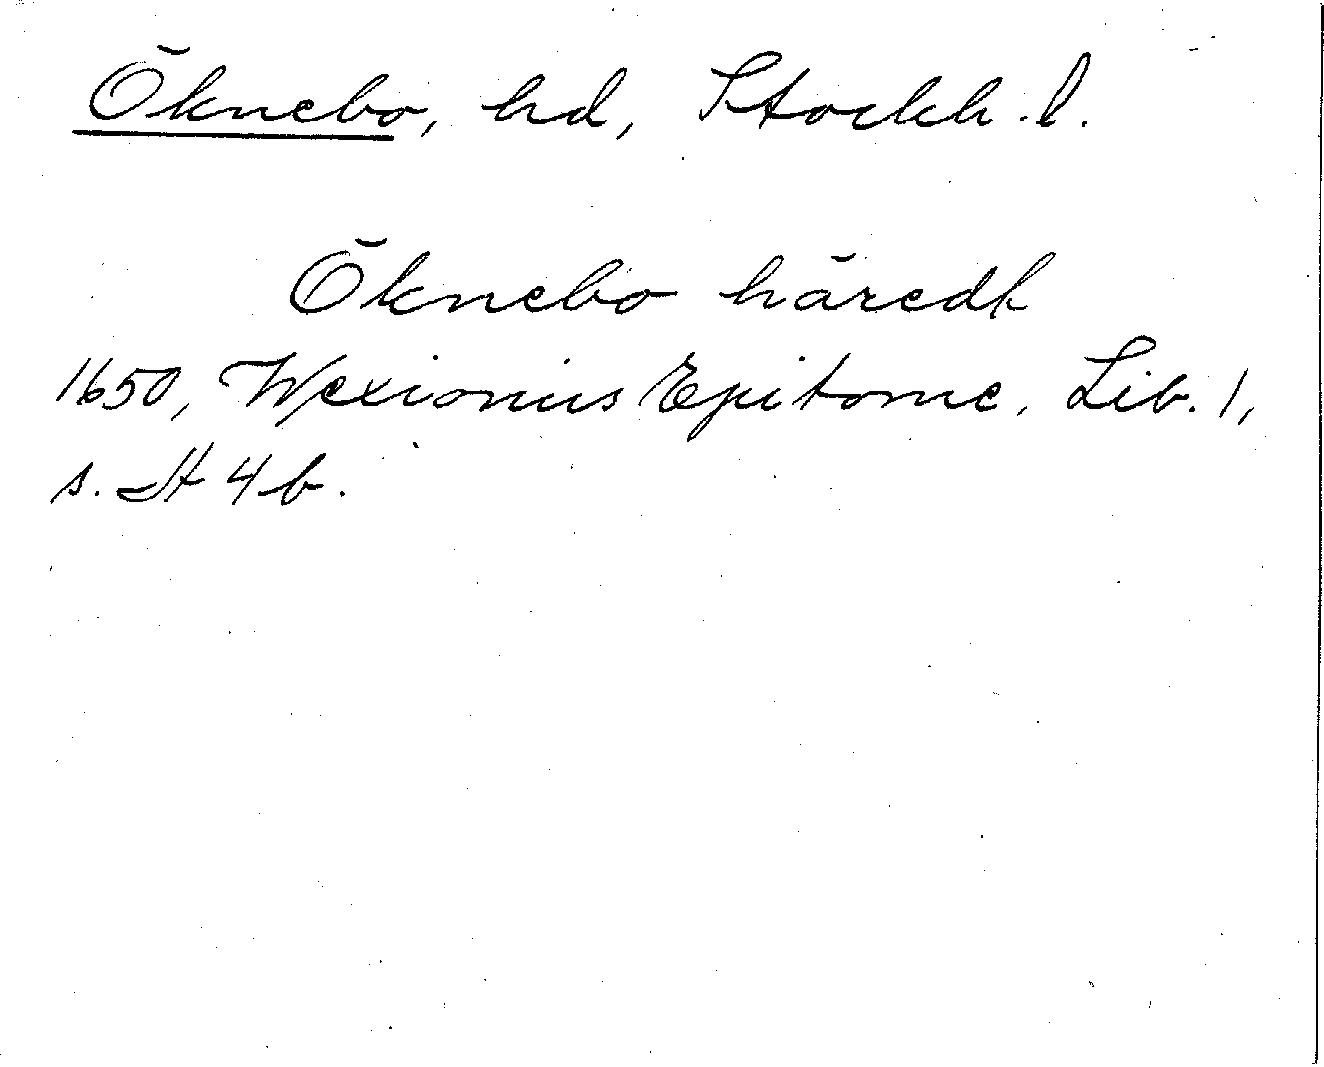 Öknebo, hd, Stockh. l.
Öknebo häredt
1650, Wexionius Epitome, Lib. 1,
s. H 4 b.